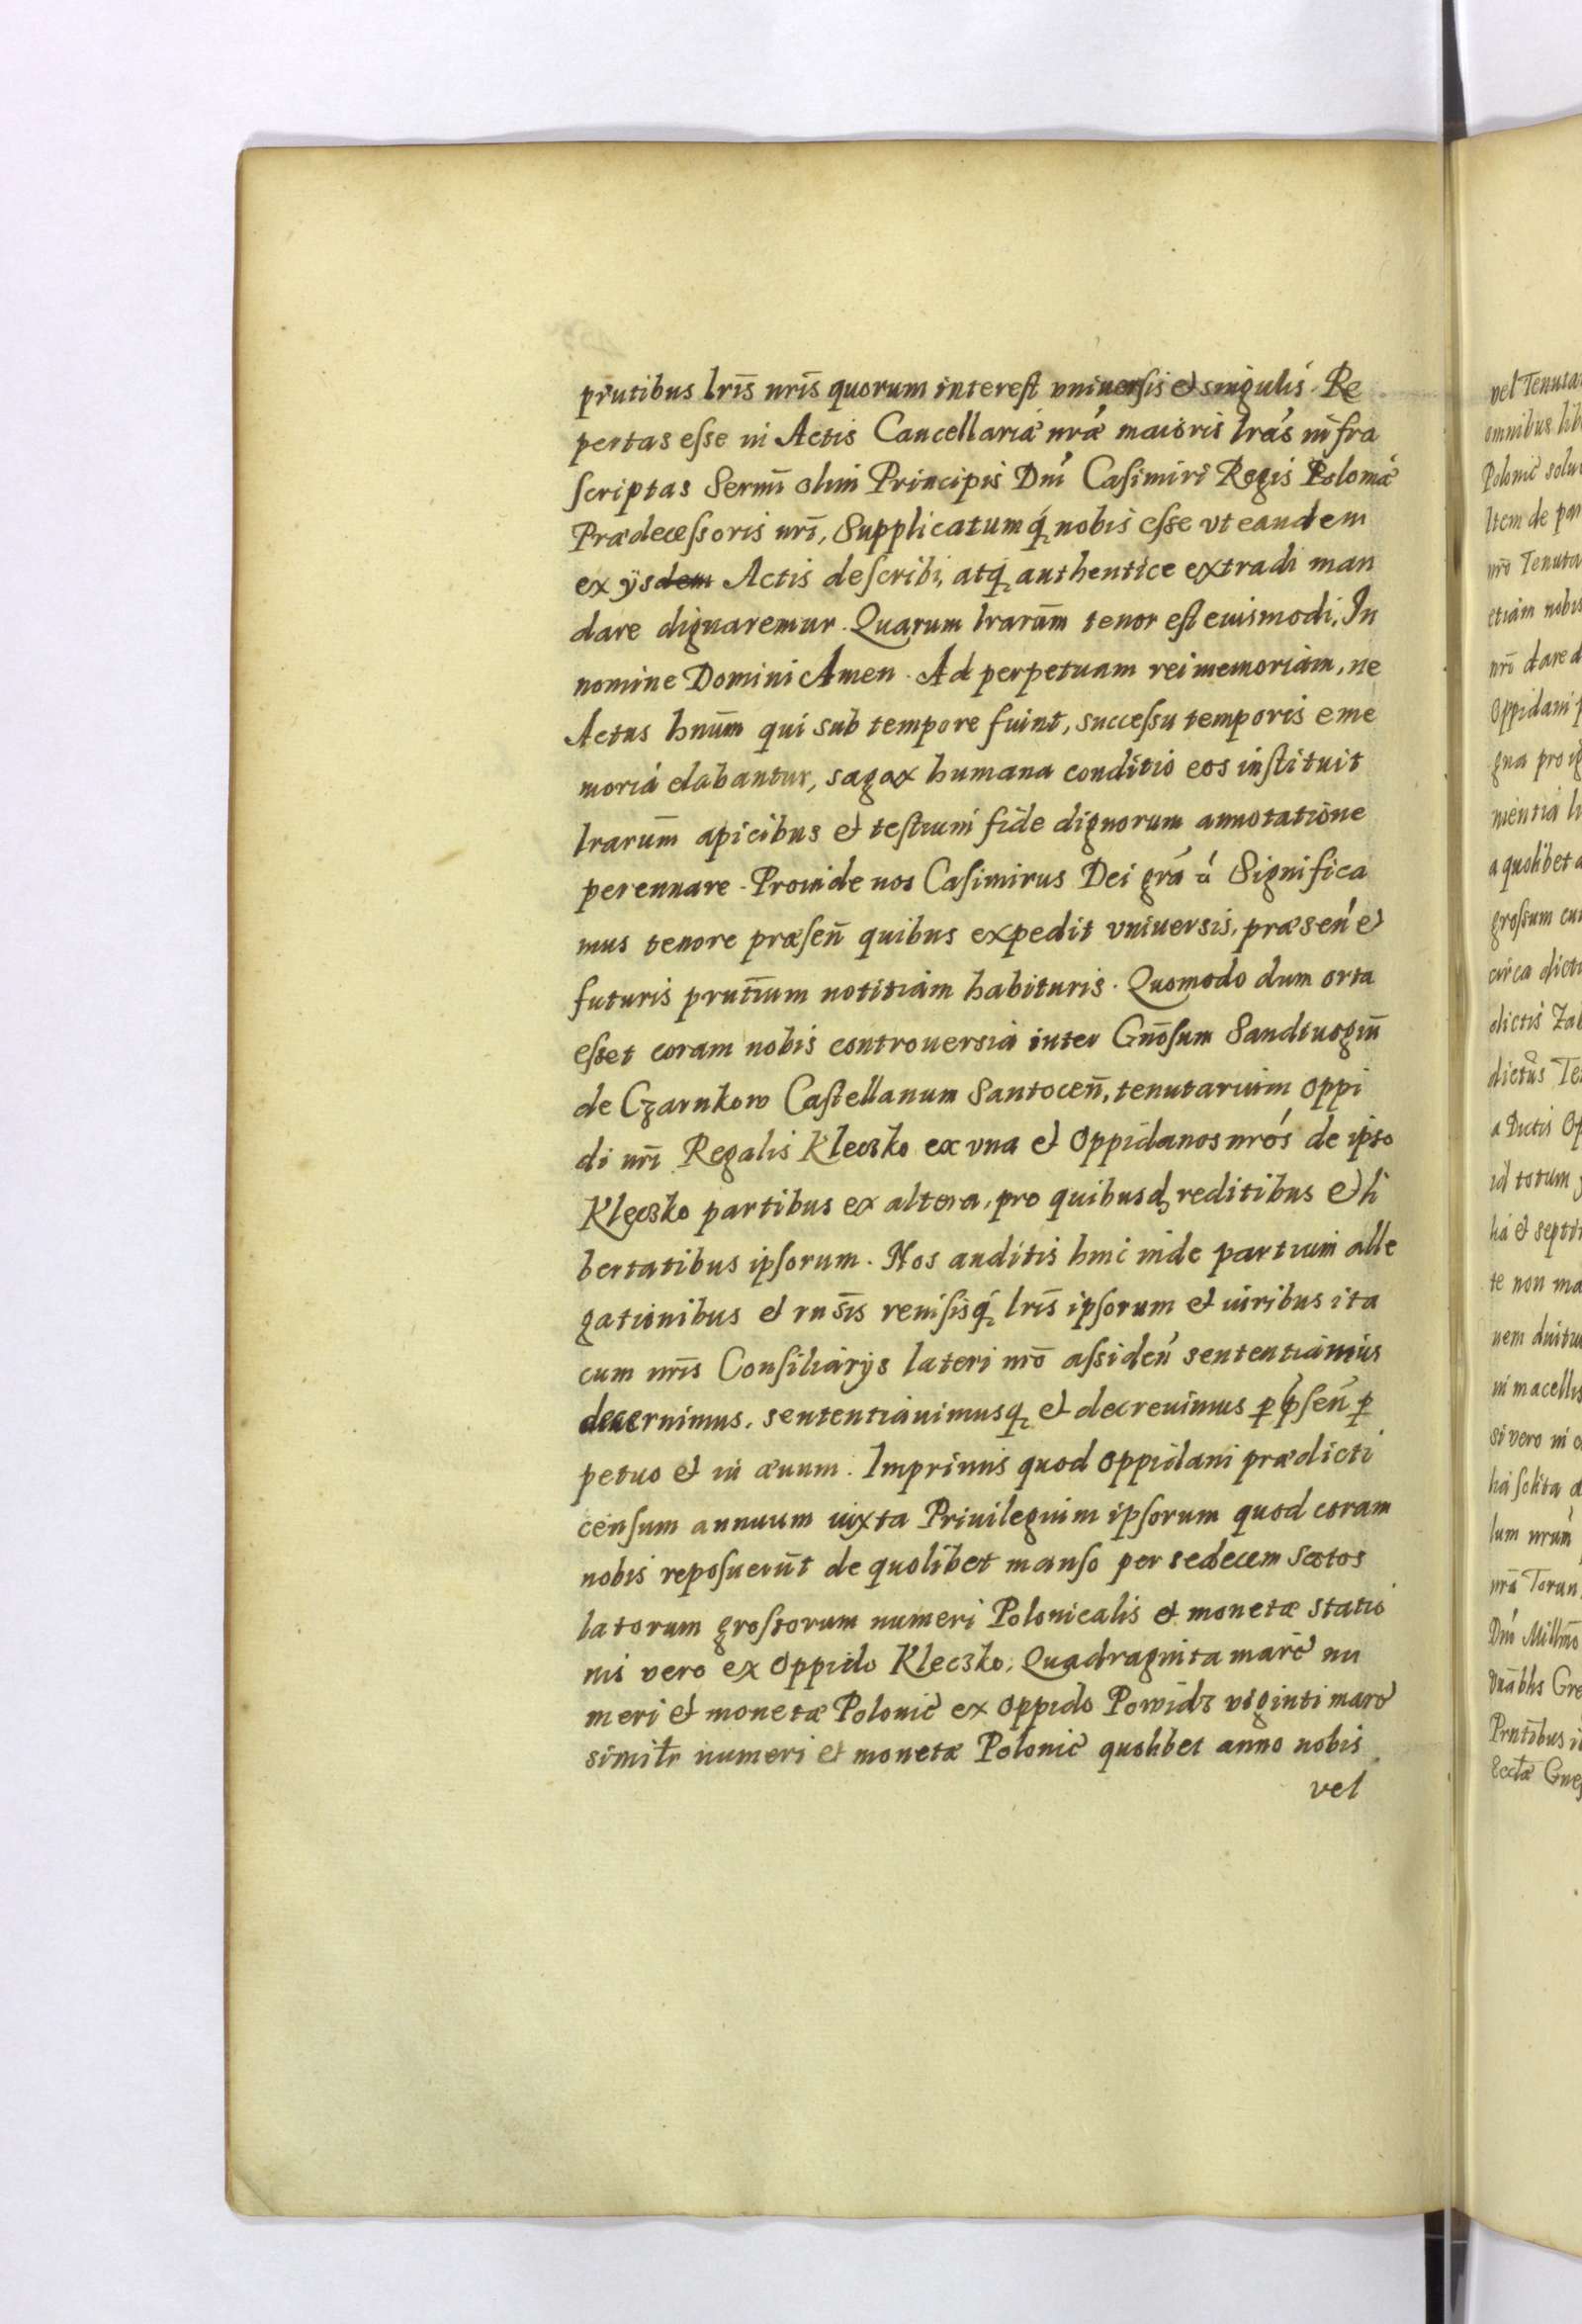 prñtibus lrĩs nrĩs quorum interest vniuersis et singulis. Re
pertas esse in Actis Cancellariæ nræ maioris lras infra
scriptas Sermi olim Principis Dni Casimiri Regis Poloniæ
Prædecessoris nrĩ, Supplicatumq́ nobis esse vt eandem
ex ijsdem Actis describi, atq́ authentice extradi man
dare dignaremur. Quarum lrarum̃ tenor est euismodi. In
nomine Domini Amen. Ad perpetuam rei memoriam, ne
Actus hnum̃ qui sub tempore fiunt, successu temporis e me
moria elabantur, sagax humana conditio eos instituit
lrarum̃ apicibus et testium fide dignorum annotatione
perennare. Proinde nos Casimirus Dei gra ũ Significa
mus tenore præsen̄ quibus expedit vniuersis, præsen̄ et
futuris prñtium notitiam habituris. Quomodo dum orta
esset coram nobis controuersia inter Gnõsum Sandiuogiu̅
de Czarnkow Castellanum Santocen̄, tenutarium Oppi
di nrĩ Regalis Kleczko ex vna et Oppidanos nros de ipso
Kleczko partibus ex altera, pro quibusdꝫ reditibus et li
bertatibus ipsorum. Nos auditis hinc inde partium alle
gationibus et rnsĩs reuisisq́ lrĩs ipsorum et iuribus ita
cum nrĩs Consiliarijs lateri nrõ assiden̄ sententiamus
decernimus, sententiauimusq́ et decreuimus ꝑ p̃sen̄ ꝑ
petuo et in æuum. Imprimis quod Oppidani prædicti
censum annuum iuxta Priuilegium ipsorum quod coram
nobis reposuerũt de quolibet manso per sedecem Scotos
latorum grossorum numeri Polonicalis et monetæ statio
nis vero ex Oppido Kleczko, Quadraginta marc̃ nu
meri et monetæ Polonic̃ ex Oppido Powidz viginti marc̃
similr̃ numeri et monetæ Polonic̃ quolibet anno nobis
vel